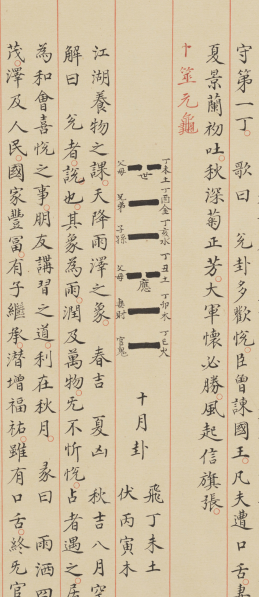 守第一丁。歌曰 兌卦多歡悅。臣曾諫國王。凡夫遭口舌。
夏景蘭初吐。秋深菊正芳。大軍懷必勝。風起信旗張。
卜筮元龜
丁未土 丁酉金 丁亥水 丁丑土 丁卯木 丁巳火
世 應
父母 兄弟 子孫 父母 妻財 官鬼
十月卦
飛丁未土
伏丙寅木
江湖養物之課。天降雨澤之象 春吉 夏凶 秋吉 八月
解曰 兌者說也。其象為雨。潤及萬物。先不忻悅。占者遇之。
為和會喜悅之事。朋友講習之道。利在秋月。彖曰 雨洒四
茂。澤及人民。國家豐富。有子繼承。潜增福祐。雖有口舌。終先官